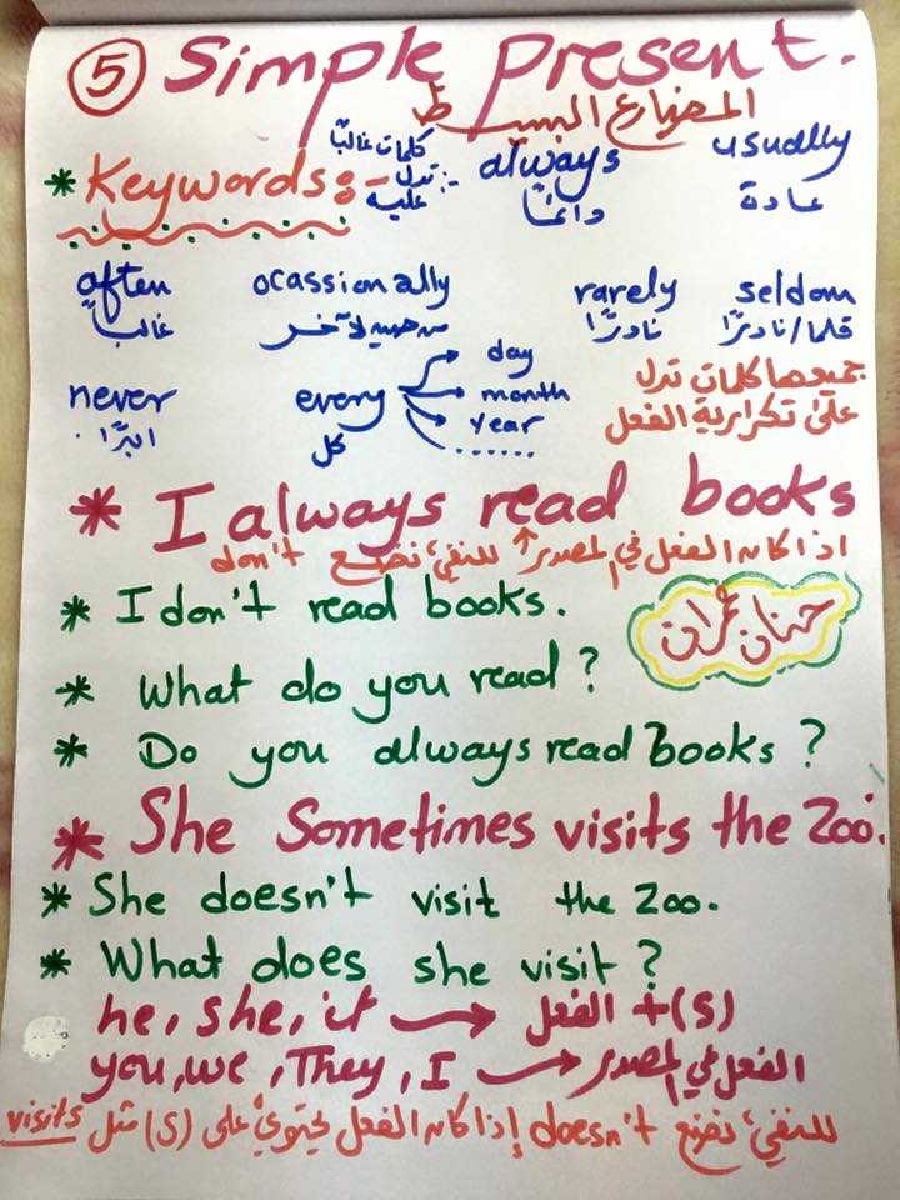 ⑤ Simple present.
المضارع البسيط
* Keywords:- كلمات غالبًا تدل عليه :- always usually
دائمًا عادة
often ocassionally rarely seldom
غالبًا من حين لآخر نادرًا قلما/نادرًا
never every day month year ......
ابدًا. كل
جميعها كلمات تدل
على تكرارية الفعل
* I always read books
اذا كان الفعل في المصدر للنفي نضع don't
* I don't read books.
حنان عمران
* What do you read?
* Do you always read books?
* She Sometimes visits the Zoo.
* She doesn't visit the Zoo.
* What does she visit?
he, she, it → الفعل + (S)
you, we, They, I → الفعل في المصدر
للنفي نضع doesn't إذا كان الفعل يحتوي على (S) مثل visits